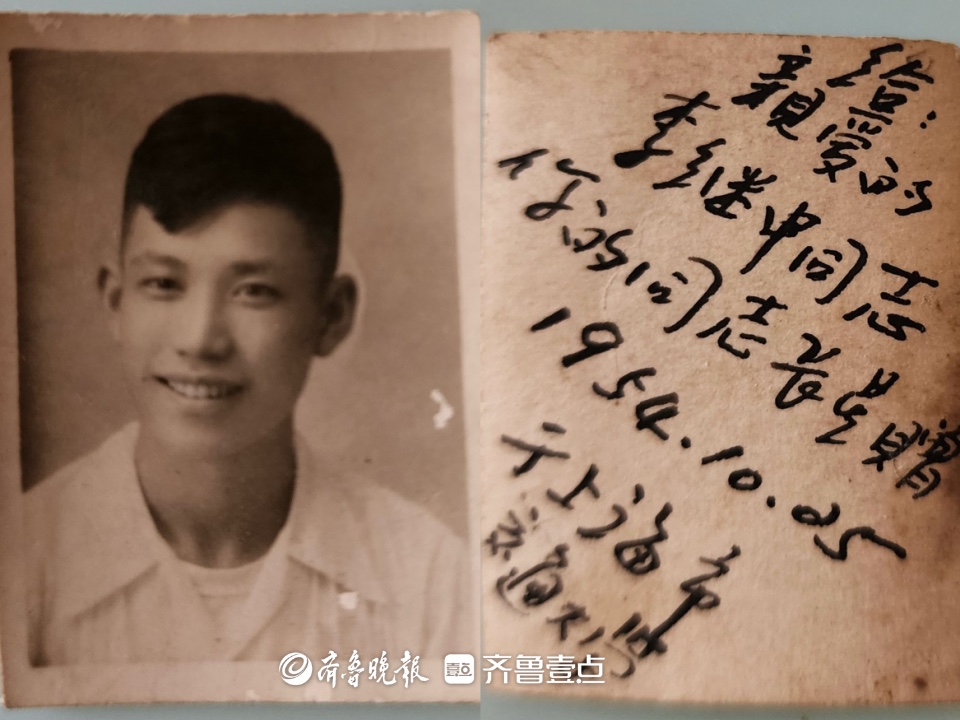 给：
親爱的
李继中同志
你的同志長是贈
1954.10.25
于上海市
交通大学
齐鲁晚报
壹点
齐鲁壹点